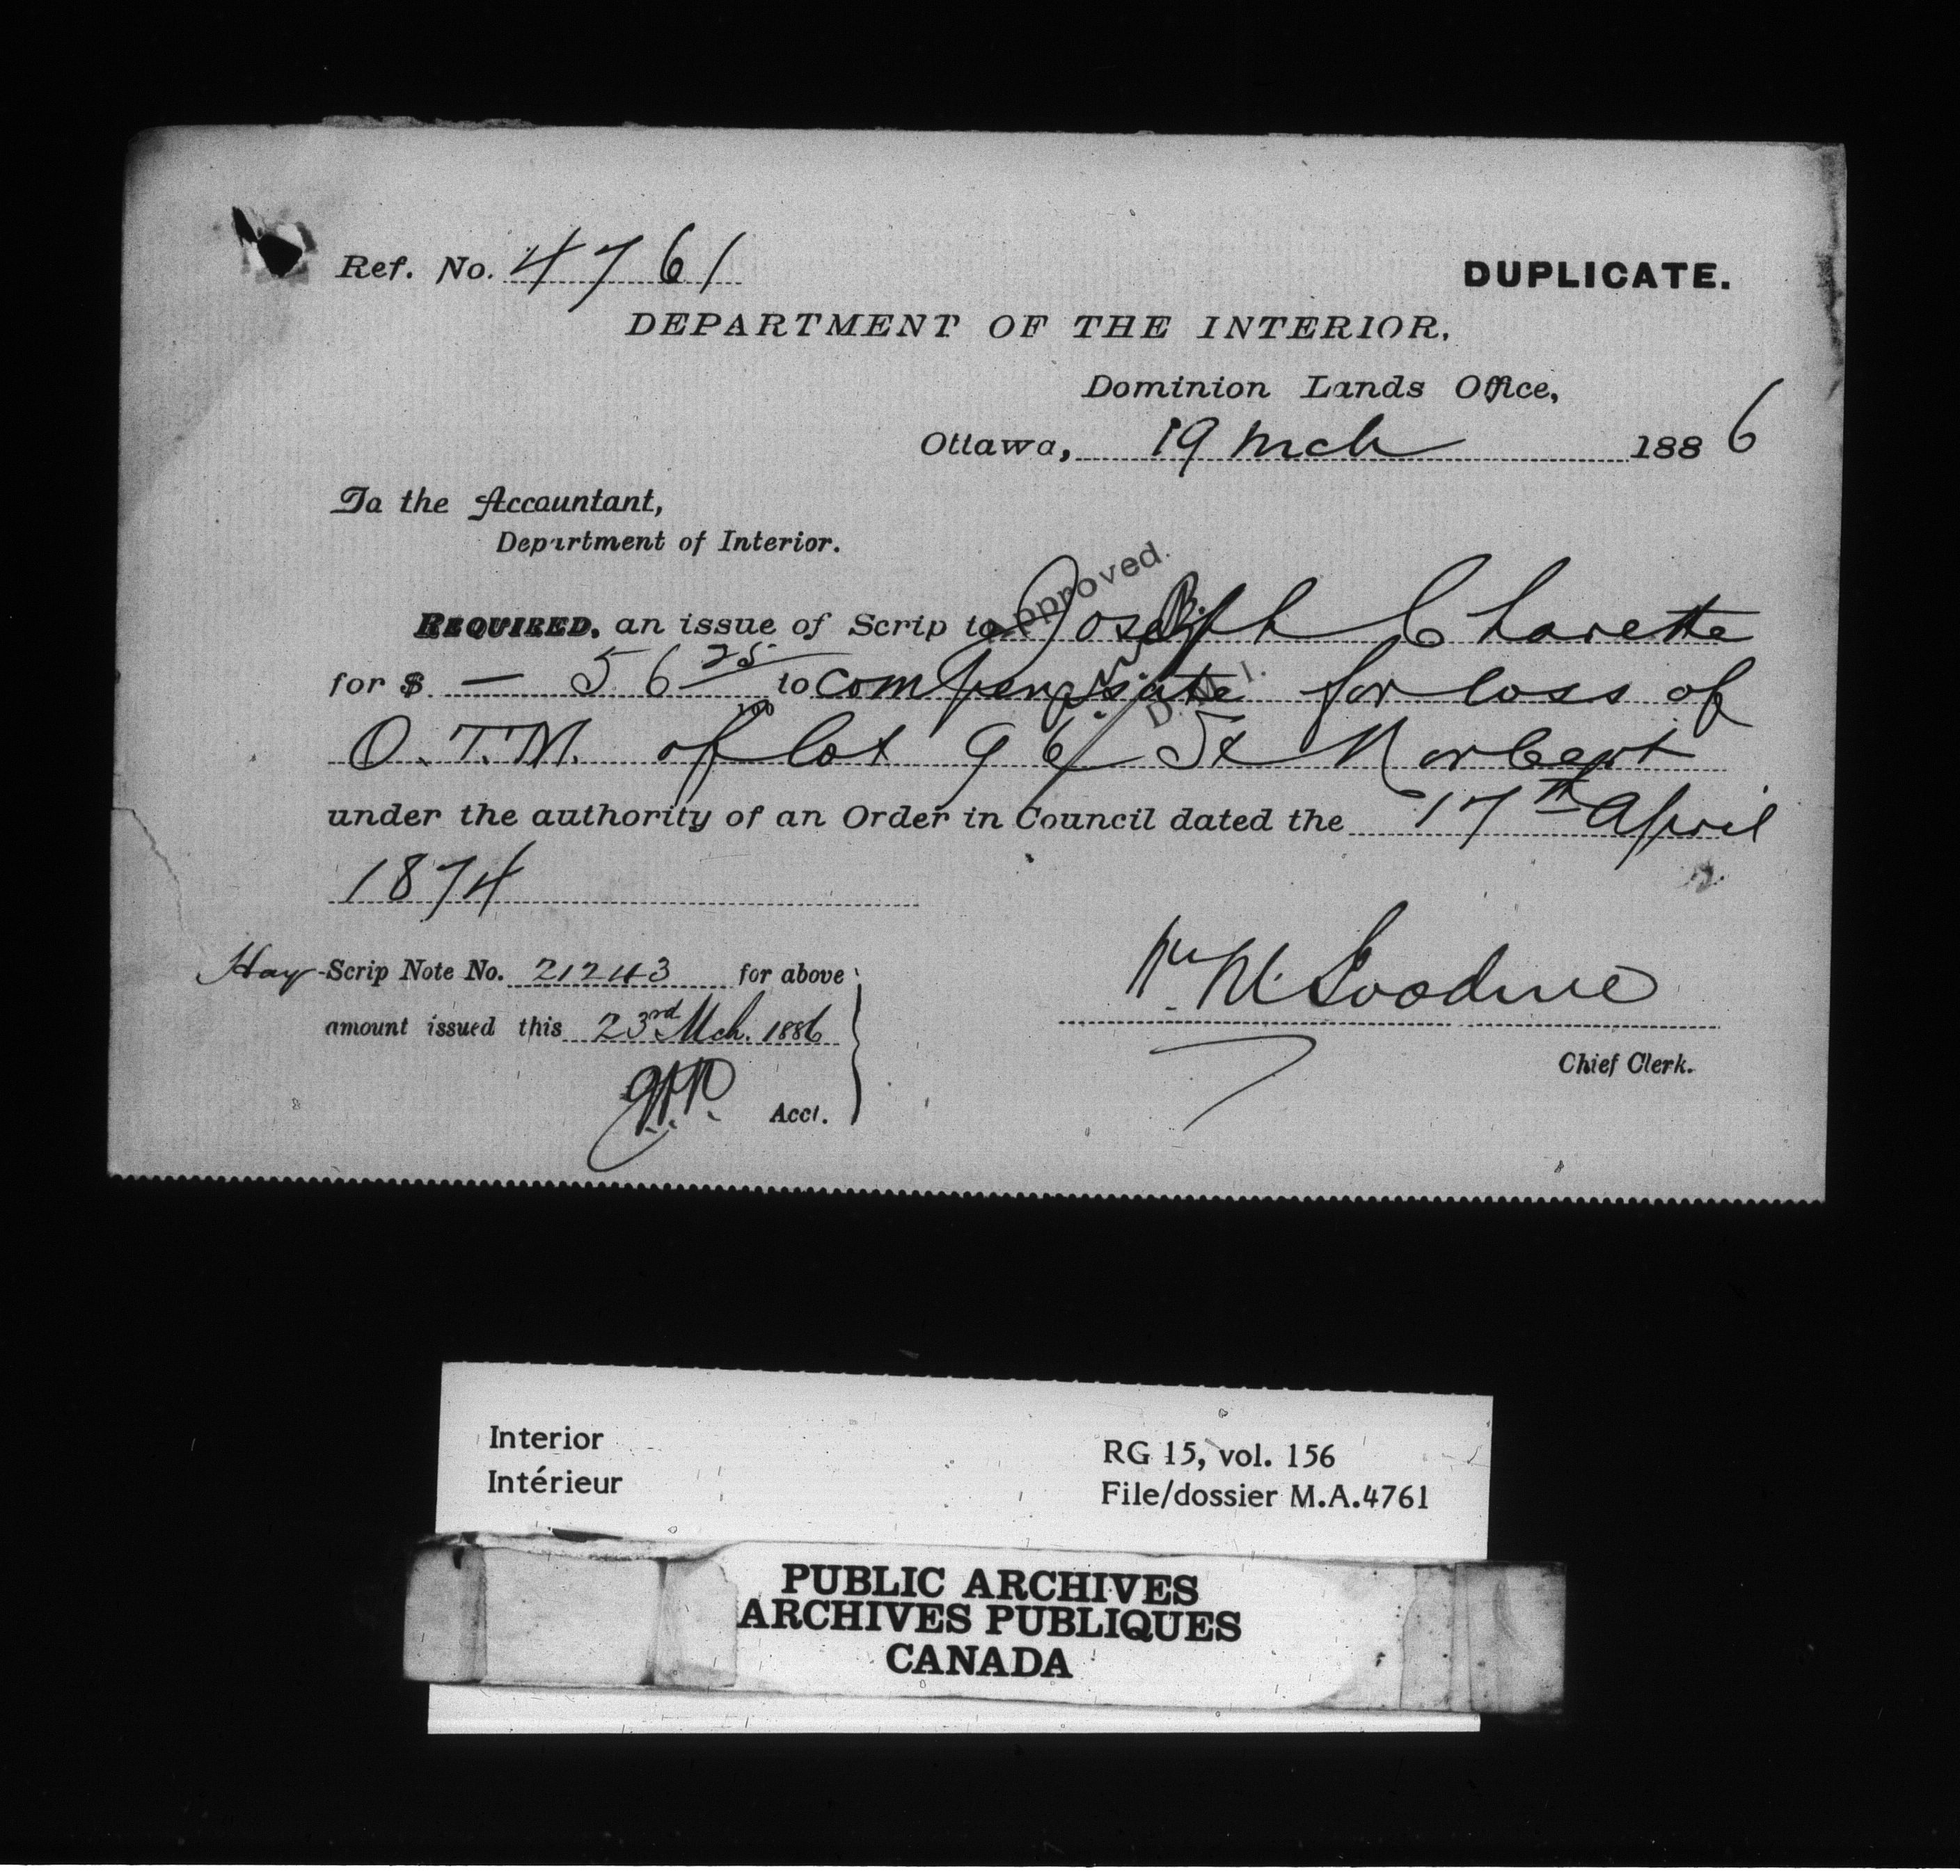 Ref. No. 4761
DUPLICATE.
DEPARTMENT OF THE INTERIOR.
Dominion Lands Office,
Ottawa, 19 Mch 1886
To the Accountant,
Department of Interior.
Approved.
REQUIRED, an issue of Scrip to Joseph Charette
for $ — 56 25/100 to compensate for loss of
D. M. I.
O.T.M. of lot 96 St Norbert
under the authority of an Order in Council dated the 17th April
1874
Hay Scrip Note No. 21243 for above
amount issued this 23rd Mch. 1886
Acct.
Wm M. Goodeve
Chief Clerk.
Interior
Intérieur
RG 15, vol. 156
File/dossier M.A.4761
PUBLIC ARCHIVES
ARCHIVES PUBLIQUES
CANADA